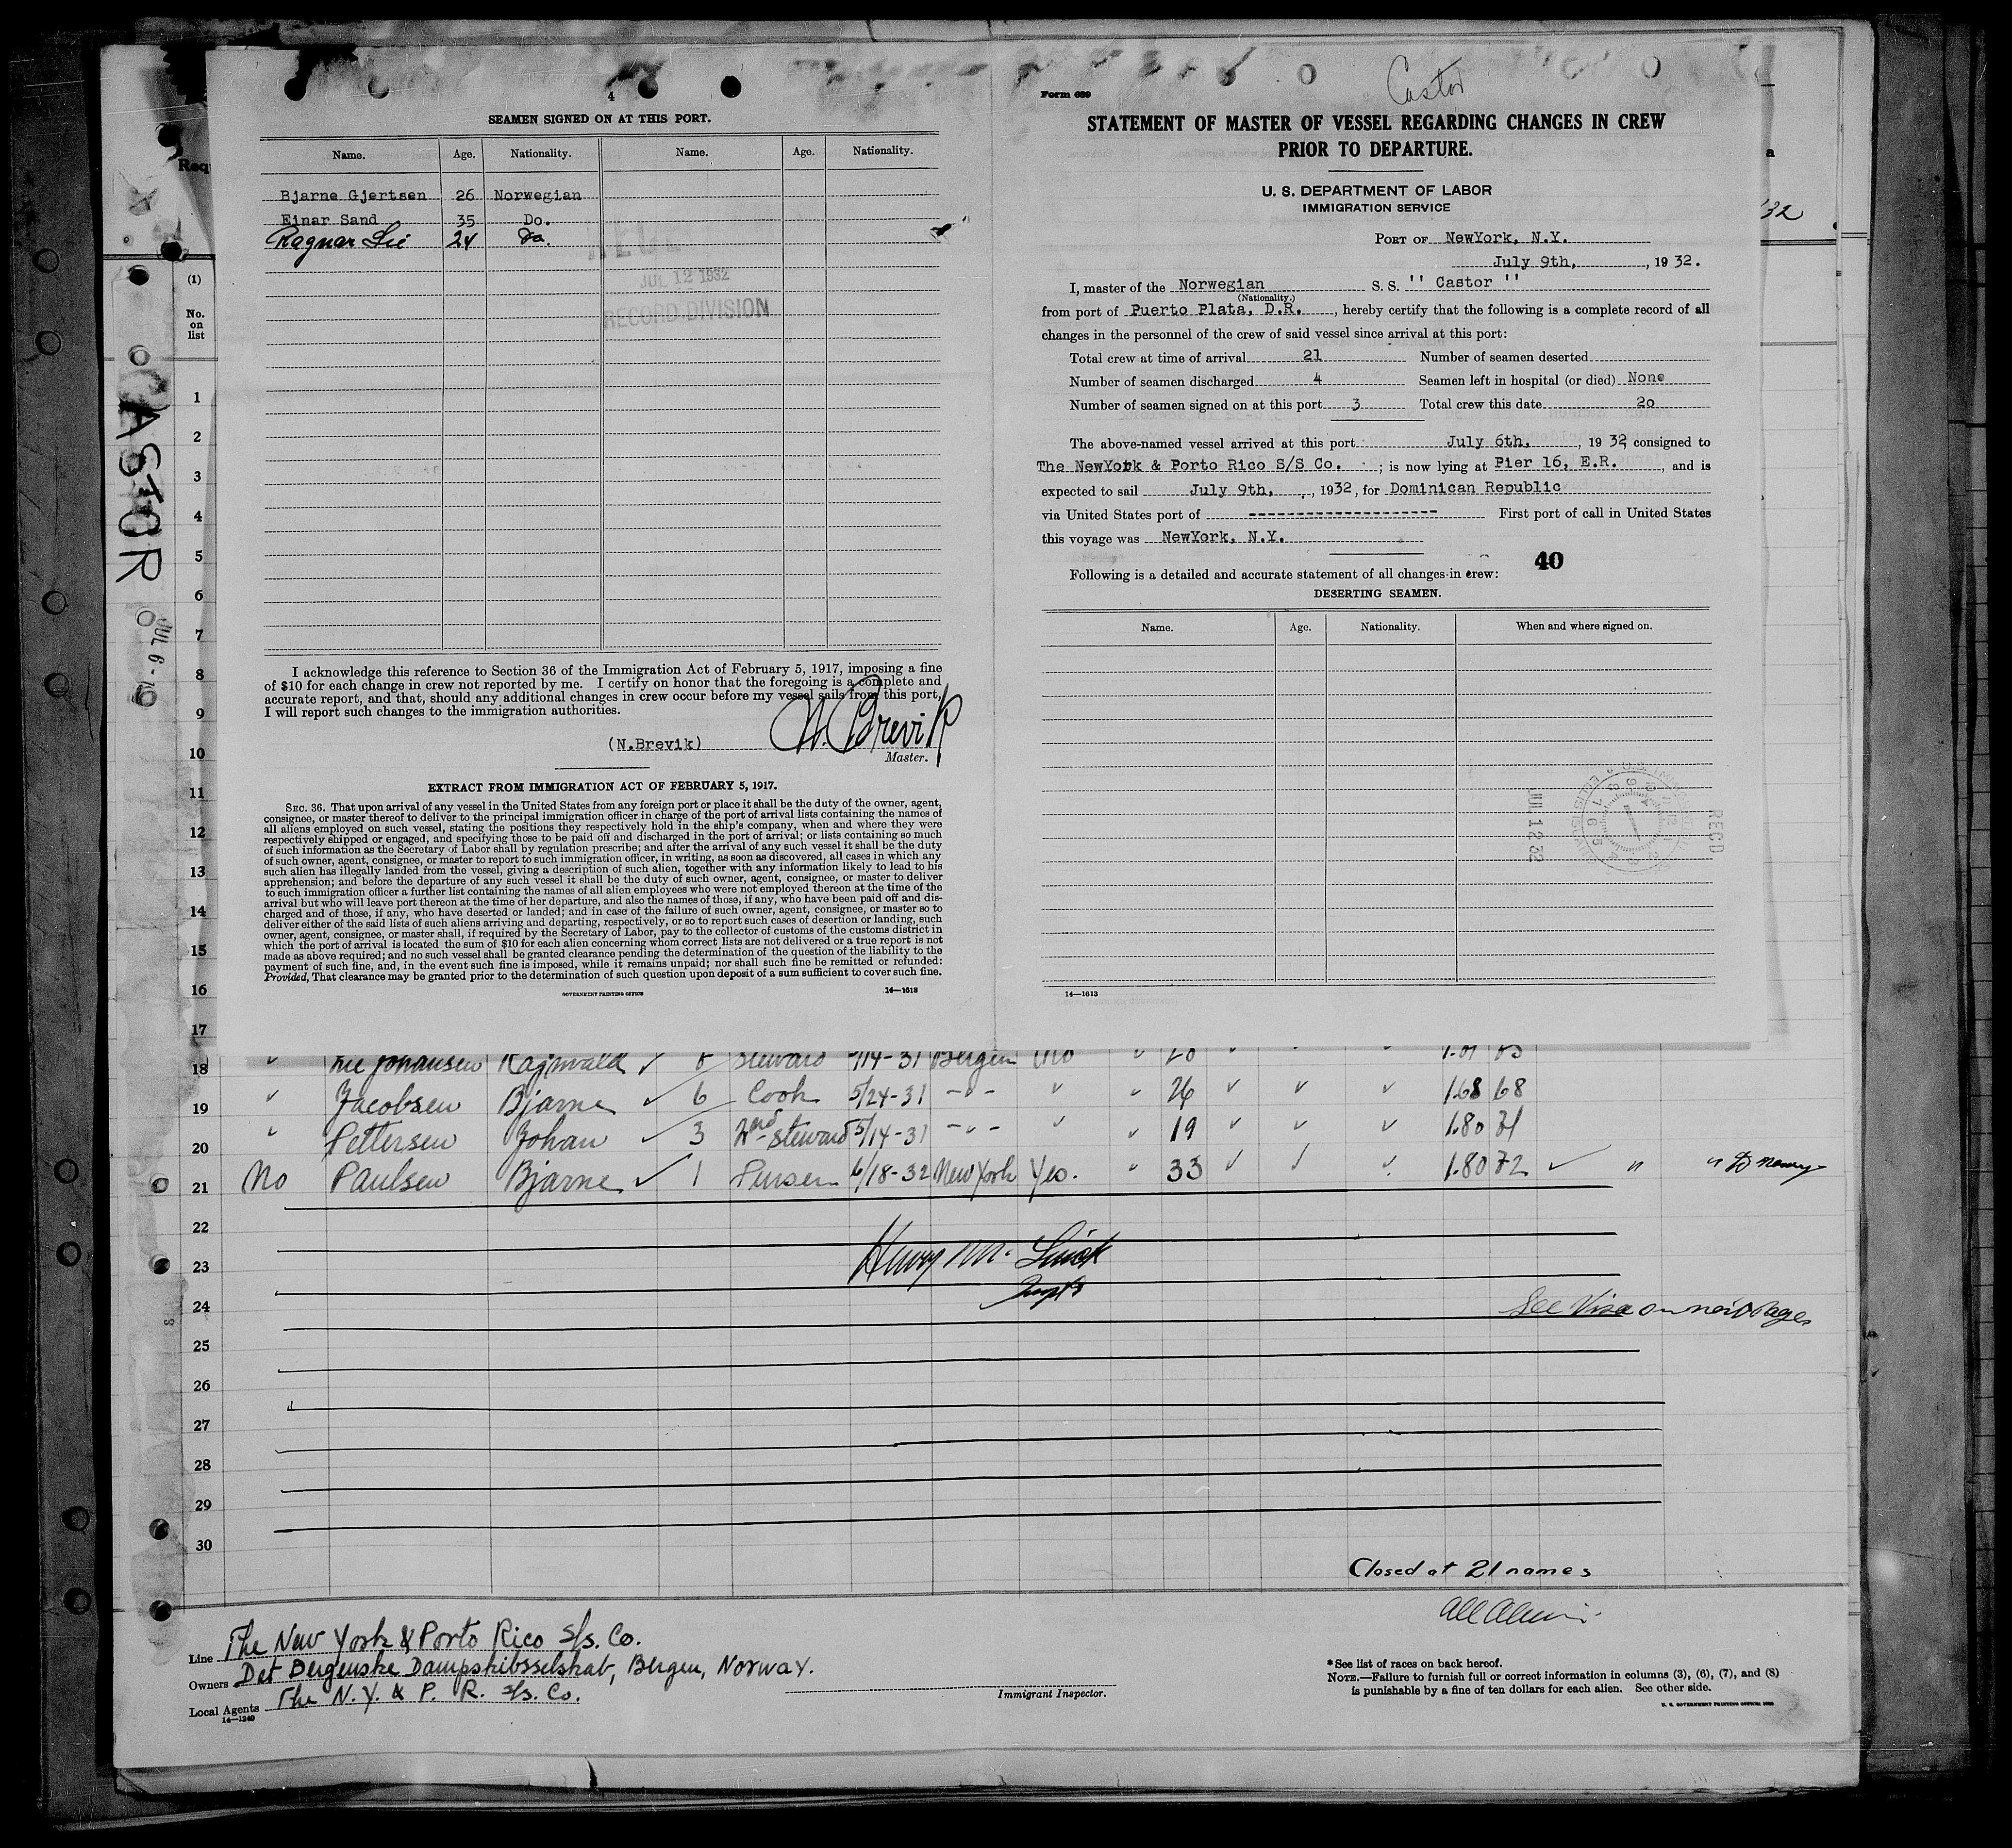 4
SEAMEN SIGNED ON AT THIS PORT.
Name. Age. Nationality. Name. Age. Nationality.
Bjarne Gjertsen 26 Norwegian
Einar Sand 35 Do.
Ragnar Lie 24 Do.
JUL 12 1932
RECORD DIVISION
I acknowledge this reference to Section 36 of the Immigration Act of February 5, 1917, imposing a fine
of $10 for each change in crew not reported by me. I certify on honor that the foregoing is a complete and
accurate report, and that, should any additional changes in crew occur before my vessel sails from this port,
I will report such changes to the immigration authorities.
N. Brevik
(N.Brevik)
Master.
EXTRACT FROM IMMIGRATION ACT OF FEBRUARY 5, 1917.
SEC. 36. That upon arrival of any vessel in the United States from any foreign port or place it shall be the duty of the owner, agent,
consignee, or master thereof to deliver to the principal immigration officer in charge of the port of arrival lists containing the names of
all aliens employed on such vessel, stating the positions they respectively hold in the ship's company, when and where they were
respectively shipped or engaged, and specifying those to be paid off and discharged in the port of arrival; or lists containing so much
of such information as the Secretary of Labor shall by regulation prescribe; and after the arrival of any such vessel it shall be the duty
of such owner, agent, consignee, or master to report to such immigration officer, in writing, as soon as discovered, all cases in which any
such alien has illegally landed from the vessel, giving a description of such alien, together with any information likely to lead to his
apprehension; and before the departure of any such vessel it shall be the duty of such owner, agent, consignee, or master to deliver
to such immigration officer a further list containing the names of all alien employees who were not employed thereon at the time of the
arrival but who will leave port thereon at the time of her departure, and also the names of those, if any, who have been paid off and dis-
charged and of those, if any, who have deserted or landed; and in case of the failure of such owner, agent, consignee, or master so to
deliver either of the said lists of such aliens arriving and departing, respectively, or so to report such cases of desertion or landing, such
owner, agent, consignee, or master shall, if required by the Secretary of Labor, pay to the collector of customs of the customs district in
which the port of arrival is located the sum of $10 for each alien concerning whom correct lists are not delivered or a true report is not
made as above required; and no such vessel shall be granted clearance pending the determination of the question of the liability to the
payment of such fine, and, in the event such fine is imposed, while it remains unpaid; nor shall such fine be remitted or refunded:
Provided, That clearance may be granted prior to the determination of such question upon deposit of a sum sufficient to cover such fine.
GOVERNMENT PRINTING OFFICE 14—1613
Castor
Form 689
STATEMENT OF MASTER OF VESSEL REGARDING CHANGES IN CREW
PRIOR TO DEPARTURE.
U. S. DEPARTMENT OF LABOR
IMMIGRATION SERVICE
PORT OF NewYork, N.Y.
July 9th, , 1932.
I, master of the Norwegian S. S. " Castor "
(Nationality.)
from port of Puerto Plata, D.R. , hereby certify that the following is a complete record of all
changes in the personnel of the crew of said vessel since arrival at this port:
Total crew at time of arrival 21 Number of seamen deserted
Number of seamen discharged 4 Seamen left in hospital (or died) None
Number of seamen signed on at this port 3 Total crew this date 20
The above-named vessel arrived at this port July 6th, , 1932, consigned to
The NewYork & Porto Rico S/S Co. ; is now lying at Pier 16, E.R. , and is
expected to sail July 9th, , 1932, for Dominican Republic
via United States port of -------------------- First port of call in United States
this voyage was NewYork, N.Y.
40
Following is a detailed and accurate statement of all changes in crew:
DESERTING SEAMEN.
Name. Age. Nationality. When and where signed on.
RECD
JUL 12 32
14—1613
Req
a
32
CASTOR
JUL 6 - 19
(1)
No.
on
list
1
2
3
4
5
6
7
8
9
10
11
12
13
14
15
16
17
18 Johansen Steward 14-31 Bergen
19 Jacobsen Bjarne 6 Cook 5/24-31 -"- 26 1.68 68
20 Pettersen Johan 3 2nd steward 5/14-31 -"- 19 1.80 71
21 No Paulsen Bjarne 1 6/18-32 New York Yes. " 33 1.80 72
22
23 Henry M.
24 See Visa on next page
25
26
27
28
29
30
Closed at 21 names
All Aliens
Line The New York & Porto Rico S/s. Co.
Owners Det Bergenske Dampskibsselskab, Bergen, Norway.
Local Agents The N. Y. & P. R. S/s. Co.
14—1240
Immigrant Inspector.
*See list of races on back hereof.
NOTE.—Failure to furnish full or correct information in columns (3), (6), (7), and (8)
is punishable by a fine of ten dollars for each alien. See other side.